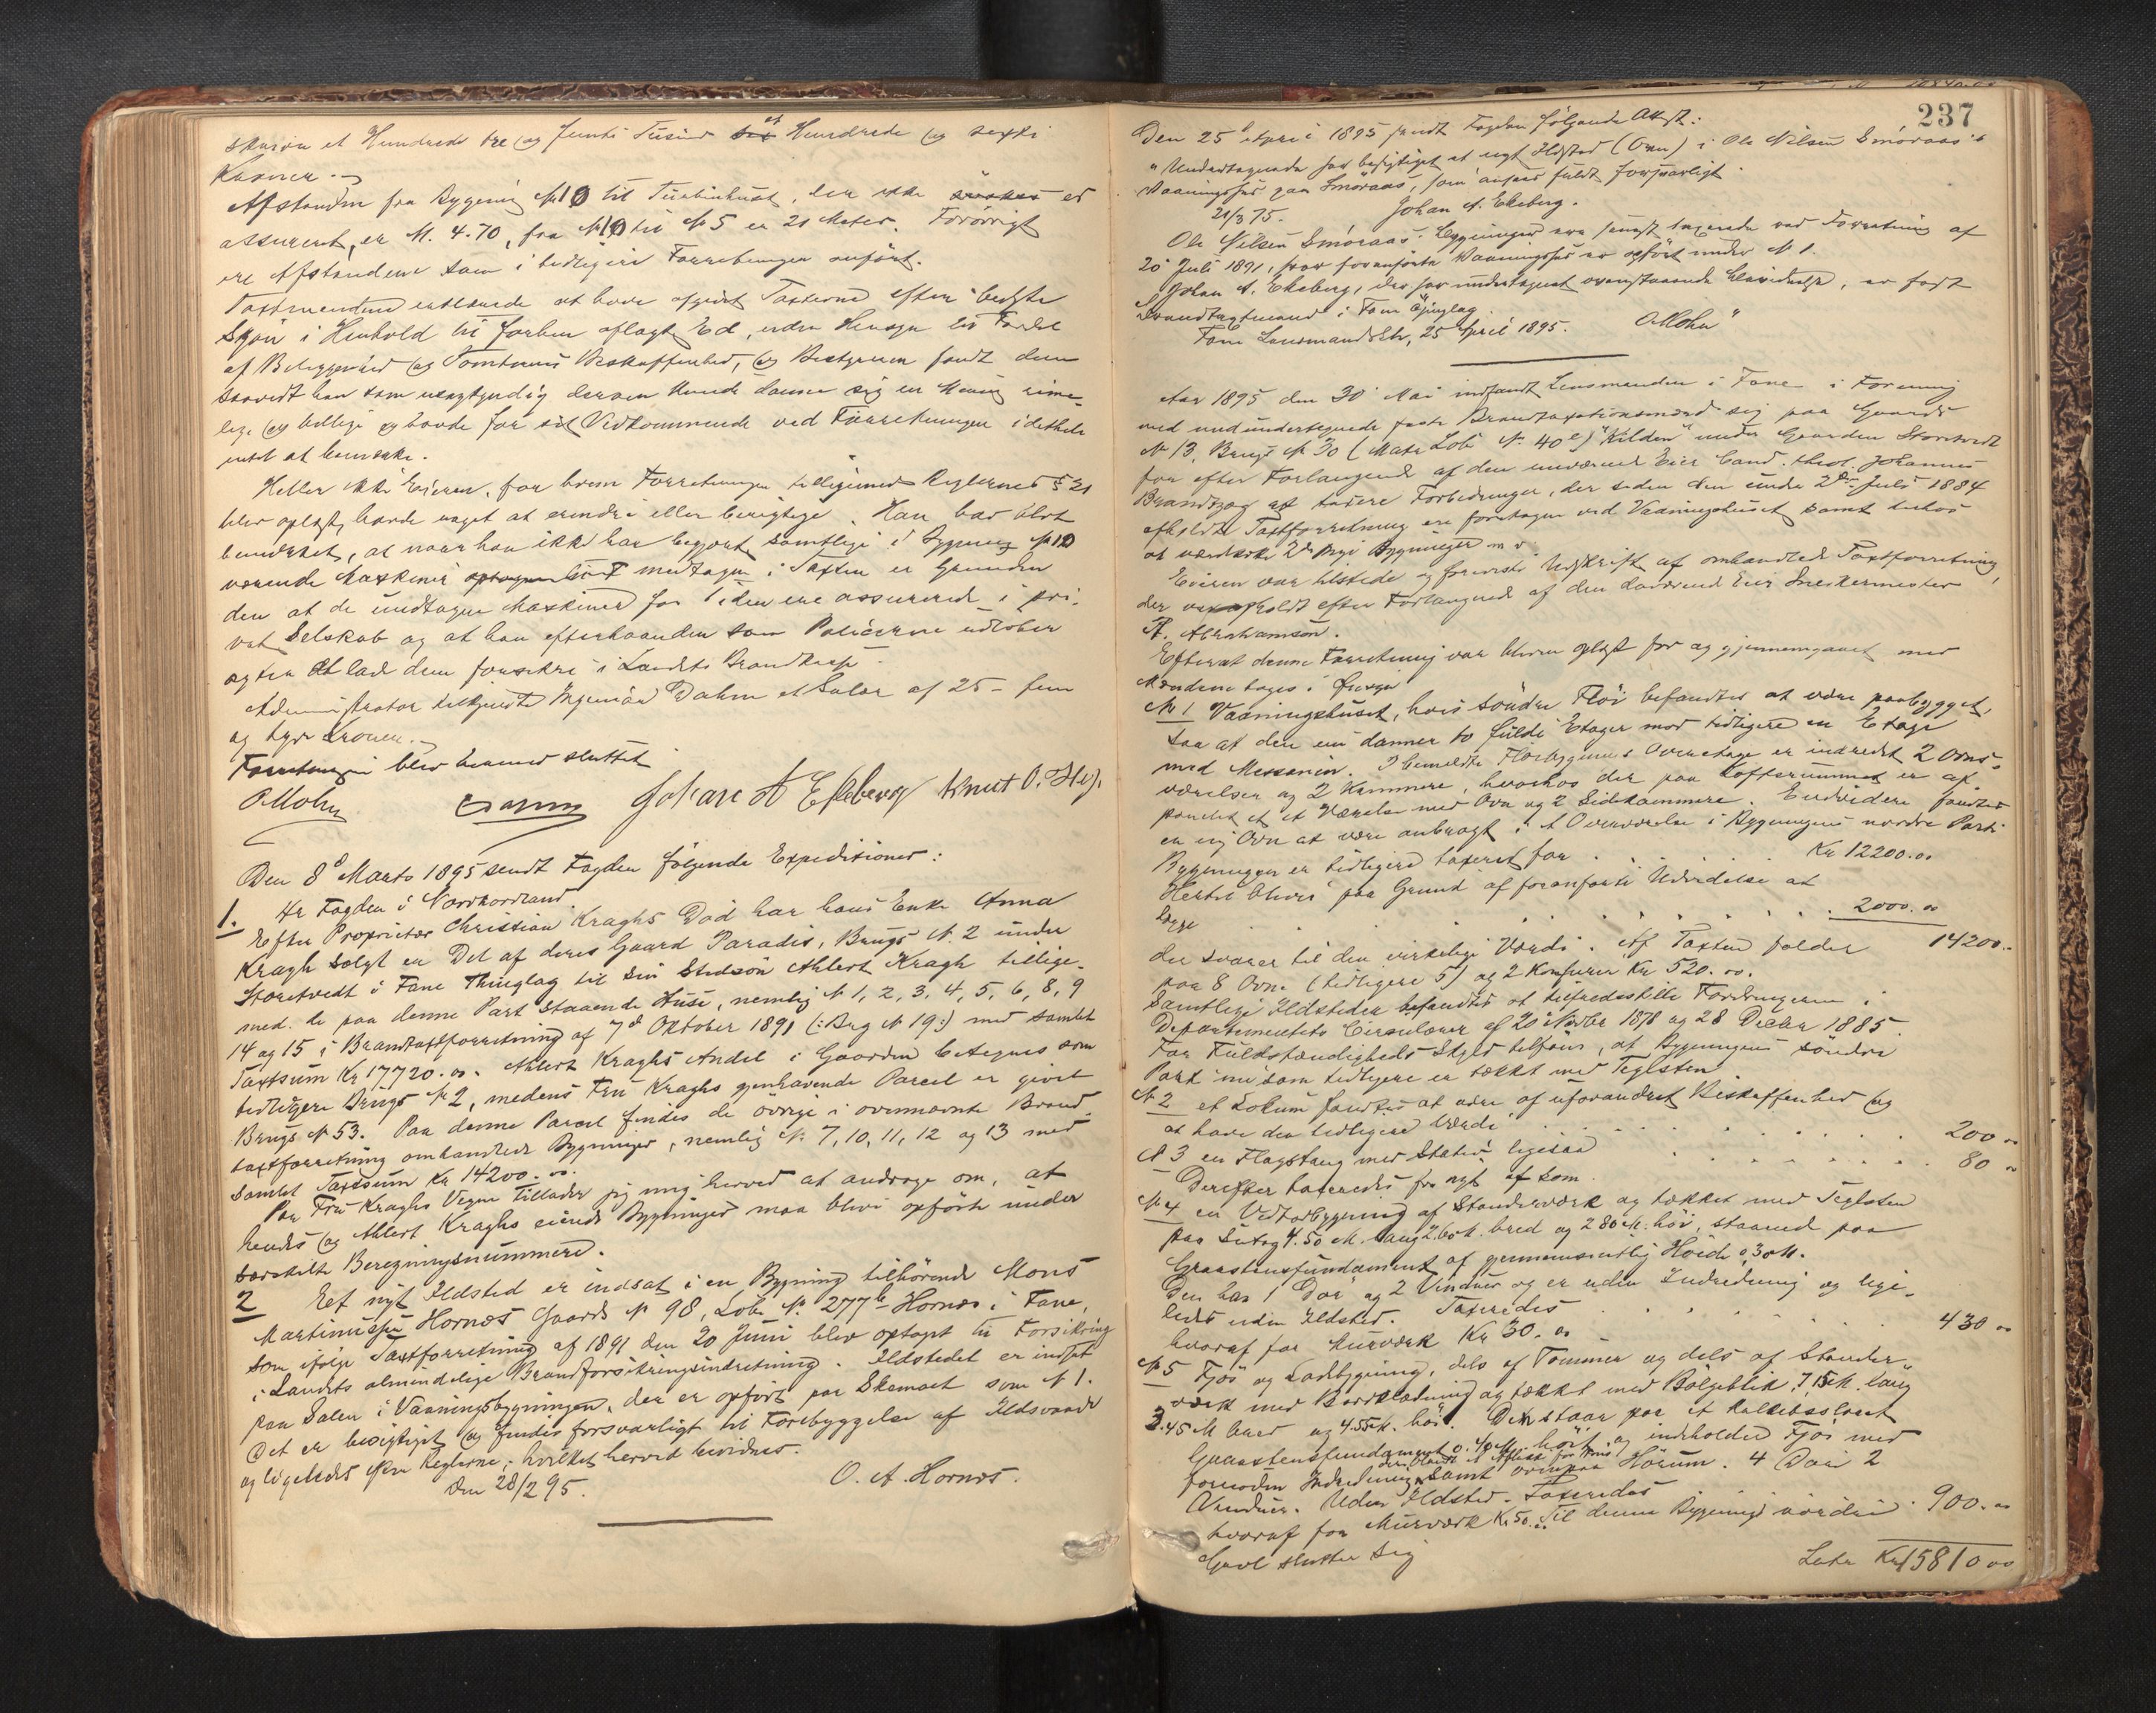 skriver et Hundrede tre og femti Tusind et Hundrede og sexti
Kroner.
Afstanden fra Bygning № 10 til Turbinhuset, der ikke önskes
assureret, er M. 4.70, fra № 10 til № 5 er 21 Meter. Forövrigt
ere Afstandene som i tidligere Forretninger anført.
Taxtmændene erklærede at have afgivet Taxterne efter bedste
Skjøn i Henhold til forhen aflagt Ed, uden Hensyn til Fordel
af Beliggenhed og Tomternes Beskaffenhed, og Bestyreren fandt dem
saavidt han som usagkyndig derom kunde danne sig en Mening rime-
lige og billige og havde for sit Vedkommende ved Forretningen idethele
intet at bemærke.
Heller ikke Eieren, for hvem Forretningen tilligemed Reglernes § 21
blev oplæst, havde noget at erindre eller berigtige. Han bad blot
bemærket, at naar han ikke har begjært samtlige i Bygning № 10
værende Maskiner medtagne i Taxten er Grunden
den at de undtagne Maskiner for Tiden ere assurerede i pri-
vat Selskab og at han efterhaanden som Policerne udløber
agter at lade dem forsikre i Landets Brandkasse.
Administrator tilkjendte Ingeniør Dahm et Salær af 25 - fem
og tyve Kroner.
Forretningen blev hermed sluttet
OMohn Dahm Johan A Ekeberg Knut O.
Den 8de Marts 1895 sendt Fogden følgende Expeditioner:
1. Hr Fogden i Nordhordland.
Efter Proprietær Christian Kraghs Död har hans Enke Anna
Kragh solgt en Del af deres Gaard Paradis, Brugs № 2 under
Storetvedt i Fane Thinglag til sin Stedsön Ahlert Kragh tillige-
med de paa denne Part staaende Huse, nemlig № 1, 2, 3, 4, 5, 6, 8, 9
14 og 15 i Brandtaxtforretning af 7de Oktober 1891 (: Brg № 19:) med samlet
Taxtsum Kr 17720.00. Ahlert Kraghs Andel i Gaarden betegnes som
tidligere Brugs № 2, medens Fru Kraghs gjenhavende Parcel er givet
Brugs № 53. Paa denne Parcel findes de övrige i ovennævnte Brand-
taxtforretning omhandlede Bygninger, nemlig № 7, 10, 11, 12 og 13 med
samlet Taxtsum Kr 14200.00.
Paa Fru Kraghs Vegne tillader jeg mig herved at andrage om, at
hendes og Ahlert Kraghs eiende Bygninger maa blive opførte under
særskilte Beregningsnummere.
2 Eet nyt Ildsted er indsat i en Bygning tilhörende Mons
Martinussen Hornæs Gaards № 98, Løbe № 277b Hornæs i Fane,
som ifølge Taxtforretning af 1891 den 20 Juni blev optaget til Forsikring
i Landets almindelige Brandforsikringsindretning. Ildstedet er indsat
paa Salen i Vaaningsbygningen, der er opført paa Skemaet som № 1.
Det er besigtiget og findes forsvarligt til Forebyggelse af Ildsvaade
og ligeledes efter Reglerne; hvilket herved bevidnes.
den 28/2 95. O. A. Hornæs.
237
Den 25de April 1895 sendt Fogden følgende Attest:
"Undertegnede har besigtiget et nyt Ildsted (Ovn) i Ole Nilsen Smøraas's
Vaaningshus paa Smøraas, som ansees fuldt forsvarligt.
21/3 95. Johan A. Ekeberg.
Ole Nilsen Smøraas' Bygninger ere senest taxerede ved Forretning af
20 Juli 1891, hvor foranførte Vaaningshus er opført under № 1.
Johan A. Ekeberg, der har undertegnet ovenstaaende Bevidnelse, er fast
Brandtaxtmand i Fane Thinglag.
Fane Lensmandsktr, 25 April 1895. OMohn"
Aar 1895 den 30 Mai indfandt Lensmanden i Fane i Forening
med nedundertegnede faste Brandtaxationsmænd sig paa Gaards
№ 13, Brugs № 30 (Matr Løbe № 40e) "Kilden" under Gaarden Storetvedt
for efter Forlangende af den nuværende Eier Cand. theol. Johannes
Brandtzæg at taxere Forbedringer, der siden den under 2den Juli 1884
afholdte Taxtforretning ere foretagne ved Vaaningshuset samt derhos
at værdsætte 2de nye Bygninger m.v.
Eieren var tilstede og foreviste Udskrift af omhandlede Taxtforretning,
der var afholdt efter Forlangende af den daværende Eier Snekkermester
A. Abrahamson.
Efterat denne Forretning var bleven oplæst for og gjennemgaaet med
Mændene toges i Öiesyn
№ 1 Vaaningshuset, hvis söndre Flöi befandtes at være paabygget,
saa at den nu danner to fulde Etager mod tidligere en Etage
med Messanin. I bemeldte Flöibygnings Overetage er indredet 2 Ovns-
værelser og 2 Kammere, hvorhos der paa Lofterummet er af-
panelet et Værelse med Ovn og 2 Sidekammere. Endvidere fandtes
en ny Ovn at være anbragt i et Overværelse i Bygningens nordre Parti
Bygningen er tidligere taxeret for . Kr 12200.00
Hertil bliver paa Grund af foranførte Udvidelse at
lægge . . . . . . 2000.00 14200.-
der svarer til den virkelige Værdi. Af Taxten falder
paa 8 Ovne (tidligere 5) og 2 Komfurer Kr 520.00.
Samtlige Ildsteder befandtes at tilfredsstille Fordringerne i
Departementets Cirkulærer af 20 Novbr 1878 og 28 Decbr 1885.
For Fuldstændigheds Skyld tilføies, at Bygningens söndre
Part nu som tidligere er tækket med Teglsten
№ 2 et Lokum fandtes at være af uforandret Beskaffenhed og
at have den tidligere Værdi . . . . . . 200 00
№ 3 en Flagstang med Stativ ligesaa . . . . . 80 00
Derefter taxeredes fra nyt af som
№ 4 en Vedbodbygning af Standerværk og tækket med Teglsten
paa Sutag 4.50 M. lang 2.60 M. bred og 2.80 M. høi, staaende paa
Graastensfundament af gjennemsnitlig Höide 0,30 M.
Den har 1 Dør og 2 Vinduer og er uden Indredning og lige-
ledes uden Ildsted. Taxeredes . . . . . . 430 00
hvoraf for Murværk Kr 30.00
№ 5 Fjös og Ladebygning, dels af Tømmer og dels af Stander-
værk med Bordklædning og tækket med Bølgeblik 7.15 M. lang
3.45 M bred og 4.55 M. høi. Den staar paa et kalkbeslaaet
Graastensfundament 0.40 M. høit og indeholder Fjös med
fornøden Indredning samt ovenpaa Hörum. 4 Döre 2
Vinduer. Uden Ildsted. Taxeredes . 900.00
hvoraf for Murværk Kr 50. Til denne Bygnings nordre
Gavl slutter sig
Latr Kr 15810 00